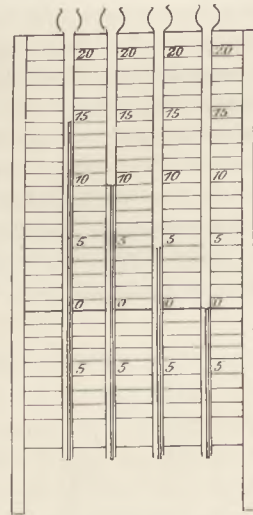 20 20 20 20
15 15 15 15
10 10 10 10
5 5 5 5
0 0 0 0
5 5 5 5